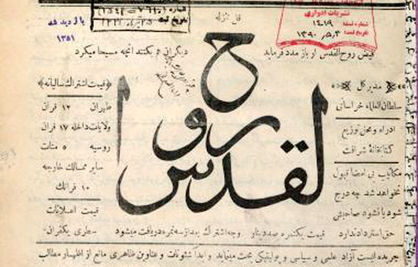 قل نزله
بازدید شد
۱۳۵۱
نشریات ادواری
۱۴۰۱۹
فیض روح القدس ار باز مدد فرماید
دیگران هم بکنند آنچه مسیحا میکرد
روح القدس
مدیر کل
سلطان العلماء خراسانی
اداره و محل توزیع
کتابخانهٔ شرافت
مکاتیب بی امضا قبول
نخواهد شد چه درج
شود یا نشود صاحبش
حق استرداد ندارد
قیمت اشتراك سالیانه
طهران ۱۲ قران
ولایات داخله ۱۷ قران
روسیه ۵ منات
سایر ممالك خارجه
۱۰ فرانك
قیمت اعلانات
سطری یکقران
قیمت یکنمره صد دینار
وجه اشتراك بعد از سه نمره دریافت میشود
جریده ایست آزاد علمی و سیاسی و پولیتیکی بحث مینماید و ابداً شئونات و عناوین ظاهری مانع از اظهار مطالب